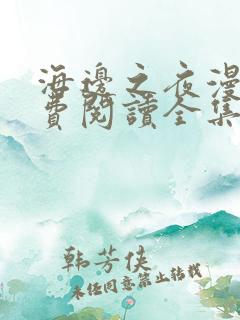 海邊之夜漫
費閱讀全集
韩芳侠
未经同意禁止转载